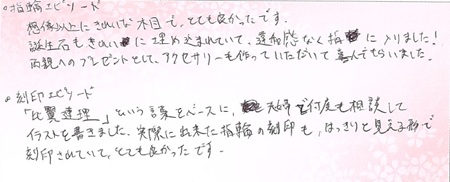 ◦指輪エピソード
想像以上にきれいな木目で、とても良かったです。
誕生石もきれいに埋め込まれていて、違和感なく指に入りました!
両親へのプレゼントとして、アクセサリーも作っていただいて喜んでもらいました。
◦刻印エピソード
「比翼連理」という言葉をベースに、夫婦で何度も相談して
イラストを書きました。実際に出来た指輪の刻印も、はっきりと見える形で
刻印されていて、とても良かったです。